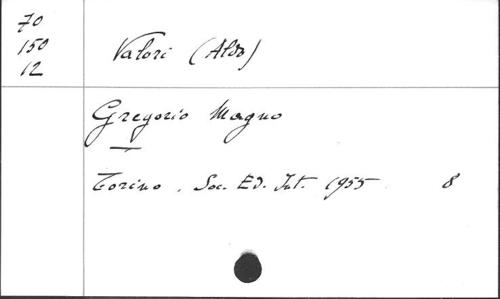 70
150
12
Valori (Aldo)
Gregorio Magno
Torino. Soc. Ed. Int. 1955 8